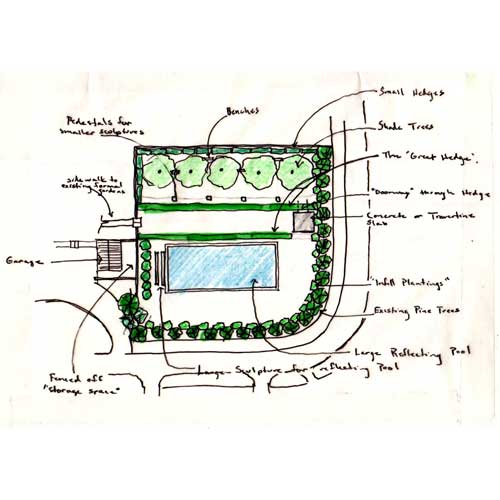 Small Hedges
Benches
Pedestals for
smaller sculptures
Shade Trees
The "Great Hedge".
side walk to
existing formal
gardens
"Doorway" through Hedge
Concrete or Travertine
Slab
Garage
"Infill Plantings"
Existing Pine Trees
Large Reflecting Pool
Large Sculpture for reflecting Pool
Fenced off
"storage space"